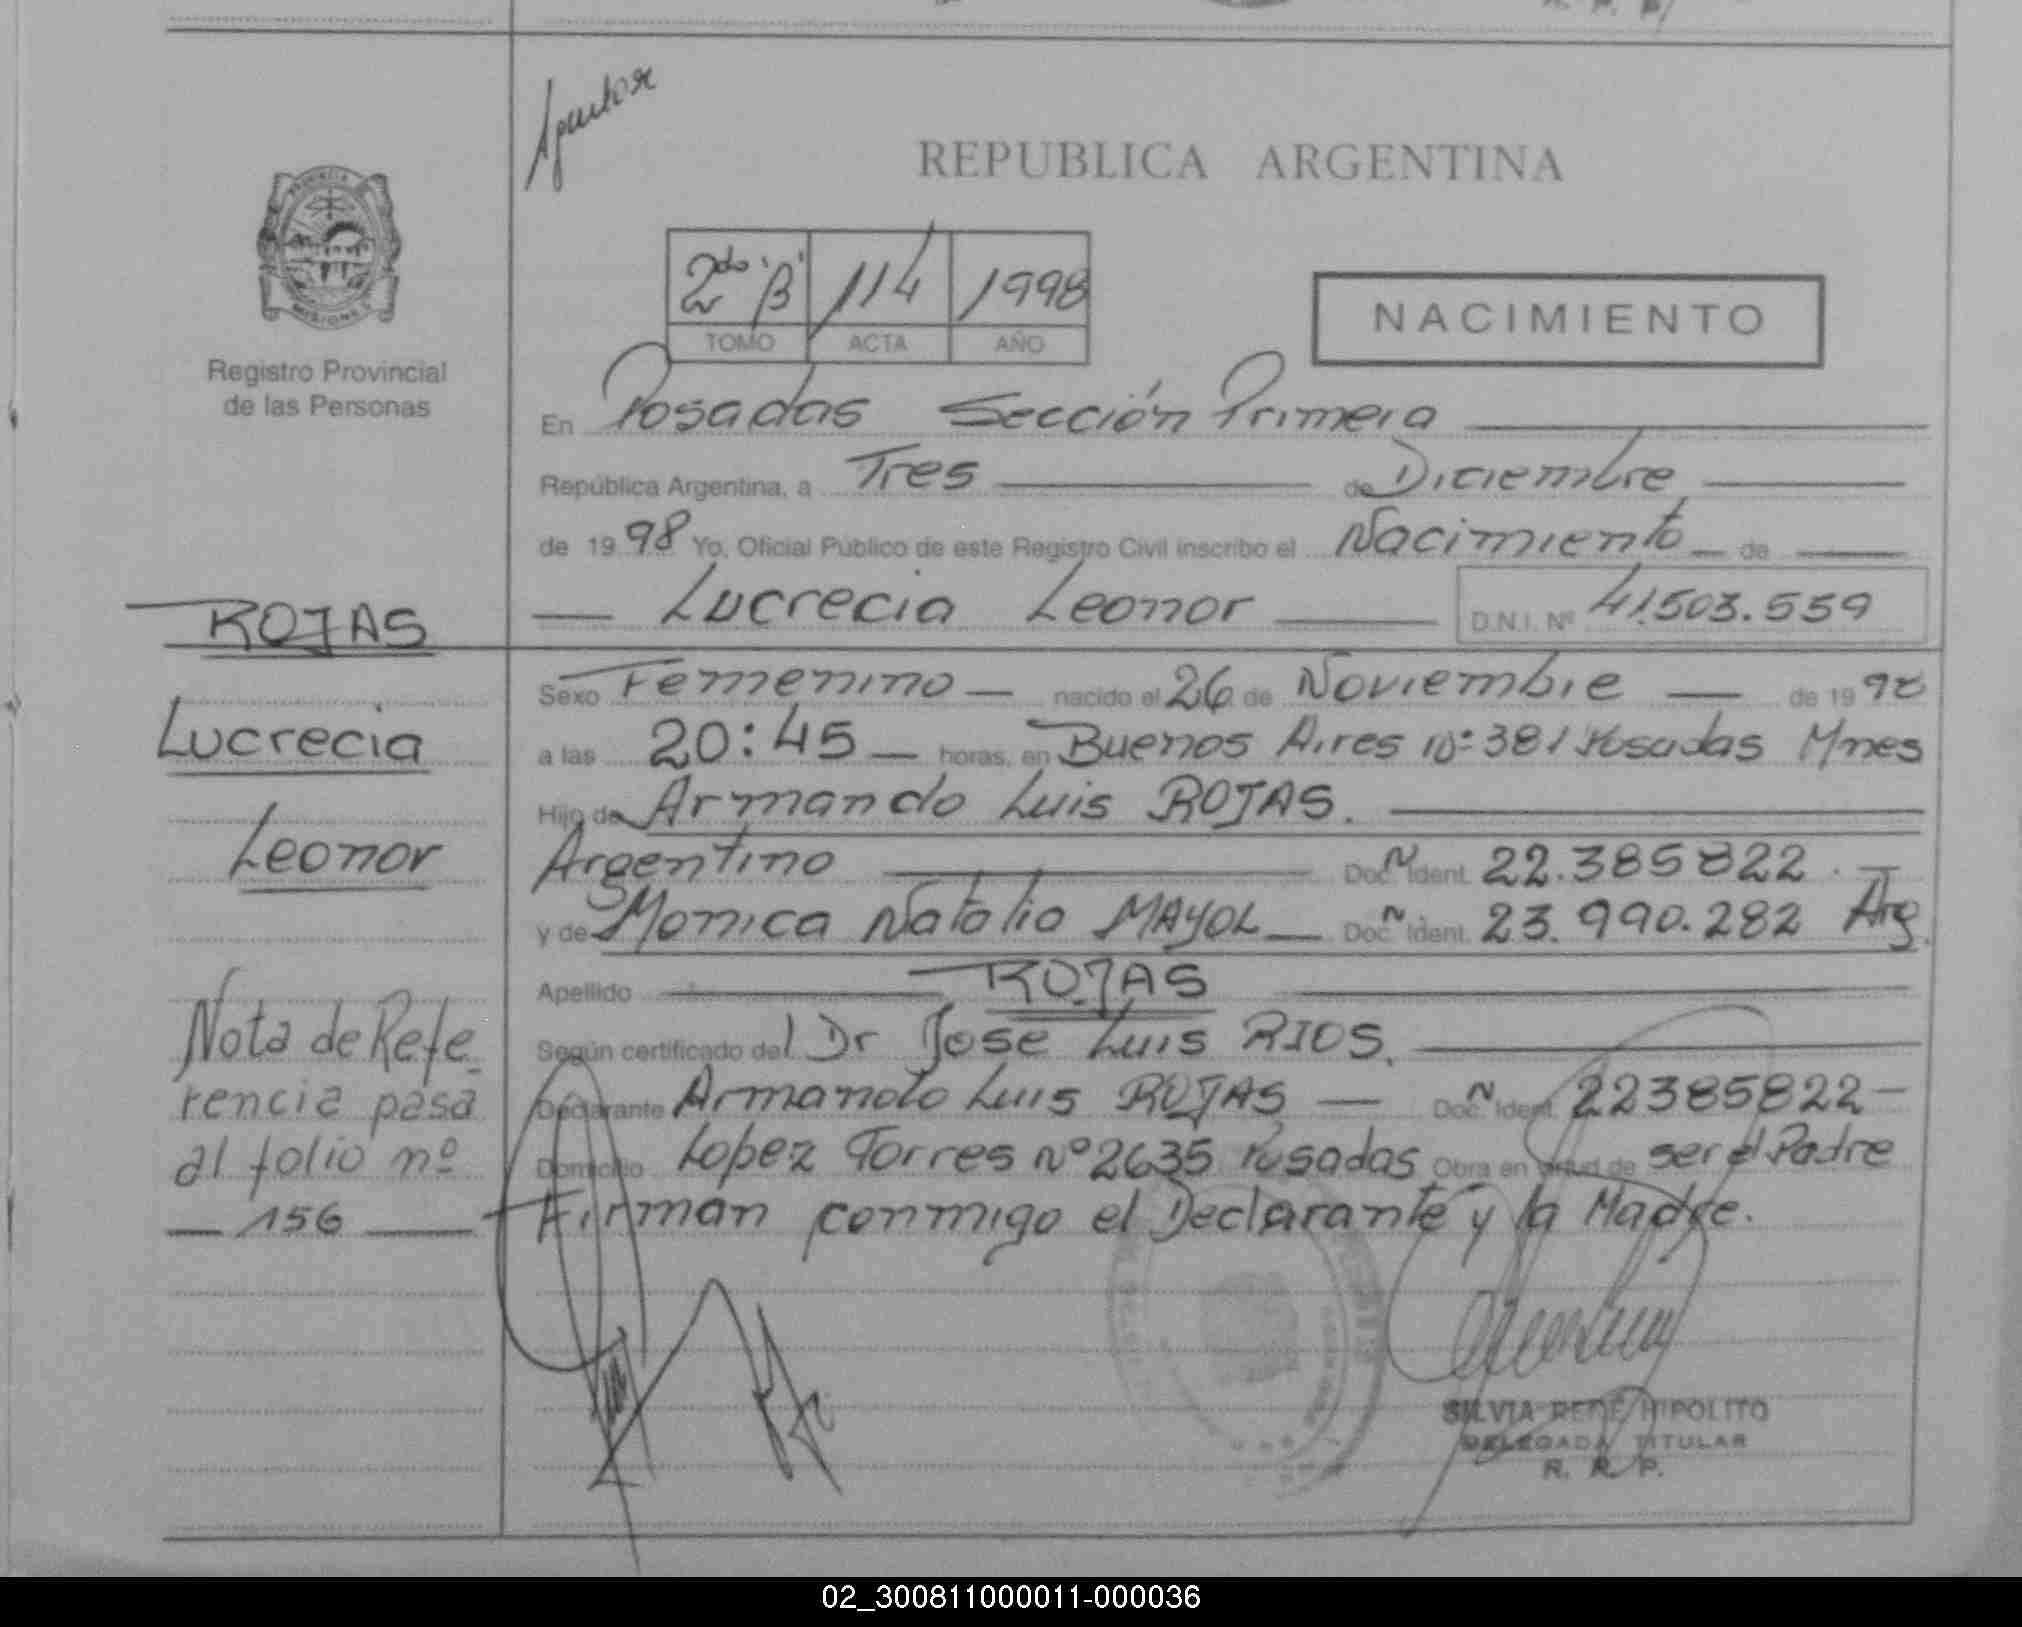 REPUBLICA ARGENTINA
PROVINCIA
MISIONES
Registro Provincial
de las Personas
2do "B" 114 1998
TOMO ACTA AÑO
NACIMIENTO
En Posadas Sección Primera
República Argentina, a Tres de Diciembre
de 19 98 Yo, Oficial Público de este Registro Civil inscribo el Nacimiento de
Lucrecia Leonor D.N.I. Nº 41.503.559
Sexo Femenino nacido el 26 de Noviembre de 19 98
a las 20:45 horas, en Buenos Aires Nº 381 Posadas Mnes
Hijo de Armando Luis ROJAS.
Argentino Doc. Ident. 22.385822.
y de Monica Natalia MAYOL Doc. Ident. 23.990.282 Arg.
Apellido ROJAS
Según certificado del Dr Jose Luis RIOS.
Declarante Armando Luis ROJAS Doc. Ident. 22385822
Domicilio Lopez Torres Nº 2635 Posadas Obra en virtud de ser el Padre
Firman conmigo el Declarante y la Madre.
SILVIA RENE HIPOLITO
DELEGADA TITULAR
R. R. P.
ROJAS
Lucrecia
Leonor
Nota de Refe-
rencia pasa
al folio nº
156
02_300811000011-000036